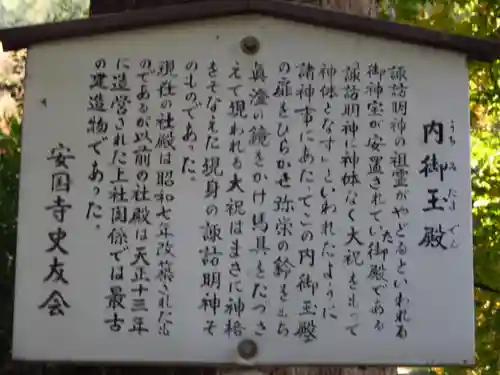 内御玉殿
うちみたまでん
諏訪明神の祖霊がやどるといわれる
御神宝が安置されていた御殿である
「諏訪明神に神体なく大祝を以って
神体となす」といわれたように
諸神事にあたってこの内御玉殿
の扉をひらかせ弥栄の鈴を持ち
真澄の鏡をかけ馬具をたづさ
えて現われる大祝はまさに神格
をそなえた現身の諏訪明神そ
のものであった。
現在の社殿は昭和七年改築されたも
のであるが以前の社殿は天正十三年
に造営された上社関係では最古
の建造物であった。
安国寺史友会